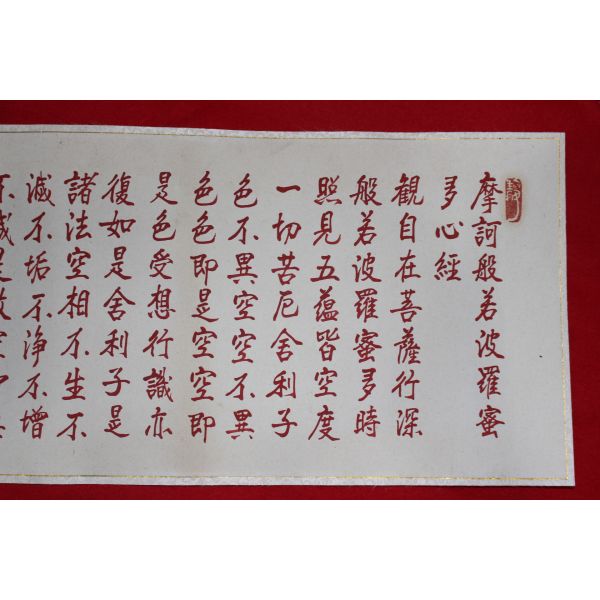 摩訶般若波羅蜜
多心經
觀自在菩薩行深
般若波羅蜜多時
照見五蘊皆空度
一切苦厄舍利子
色不異空空不異
色色即是空空即
是色受想行識亦
復如是舍利子是
諸法空相不生不
滅不垢不淨不增